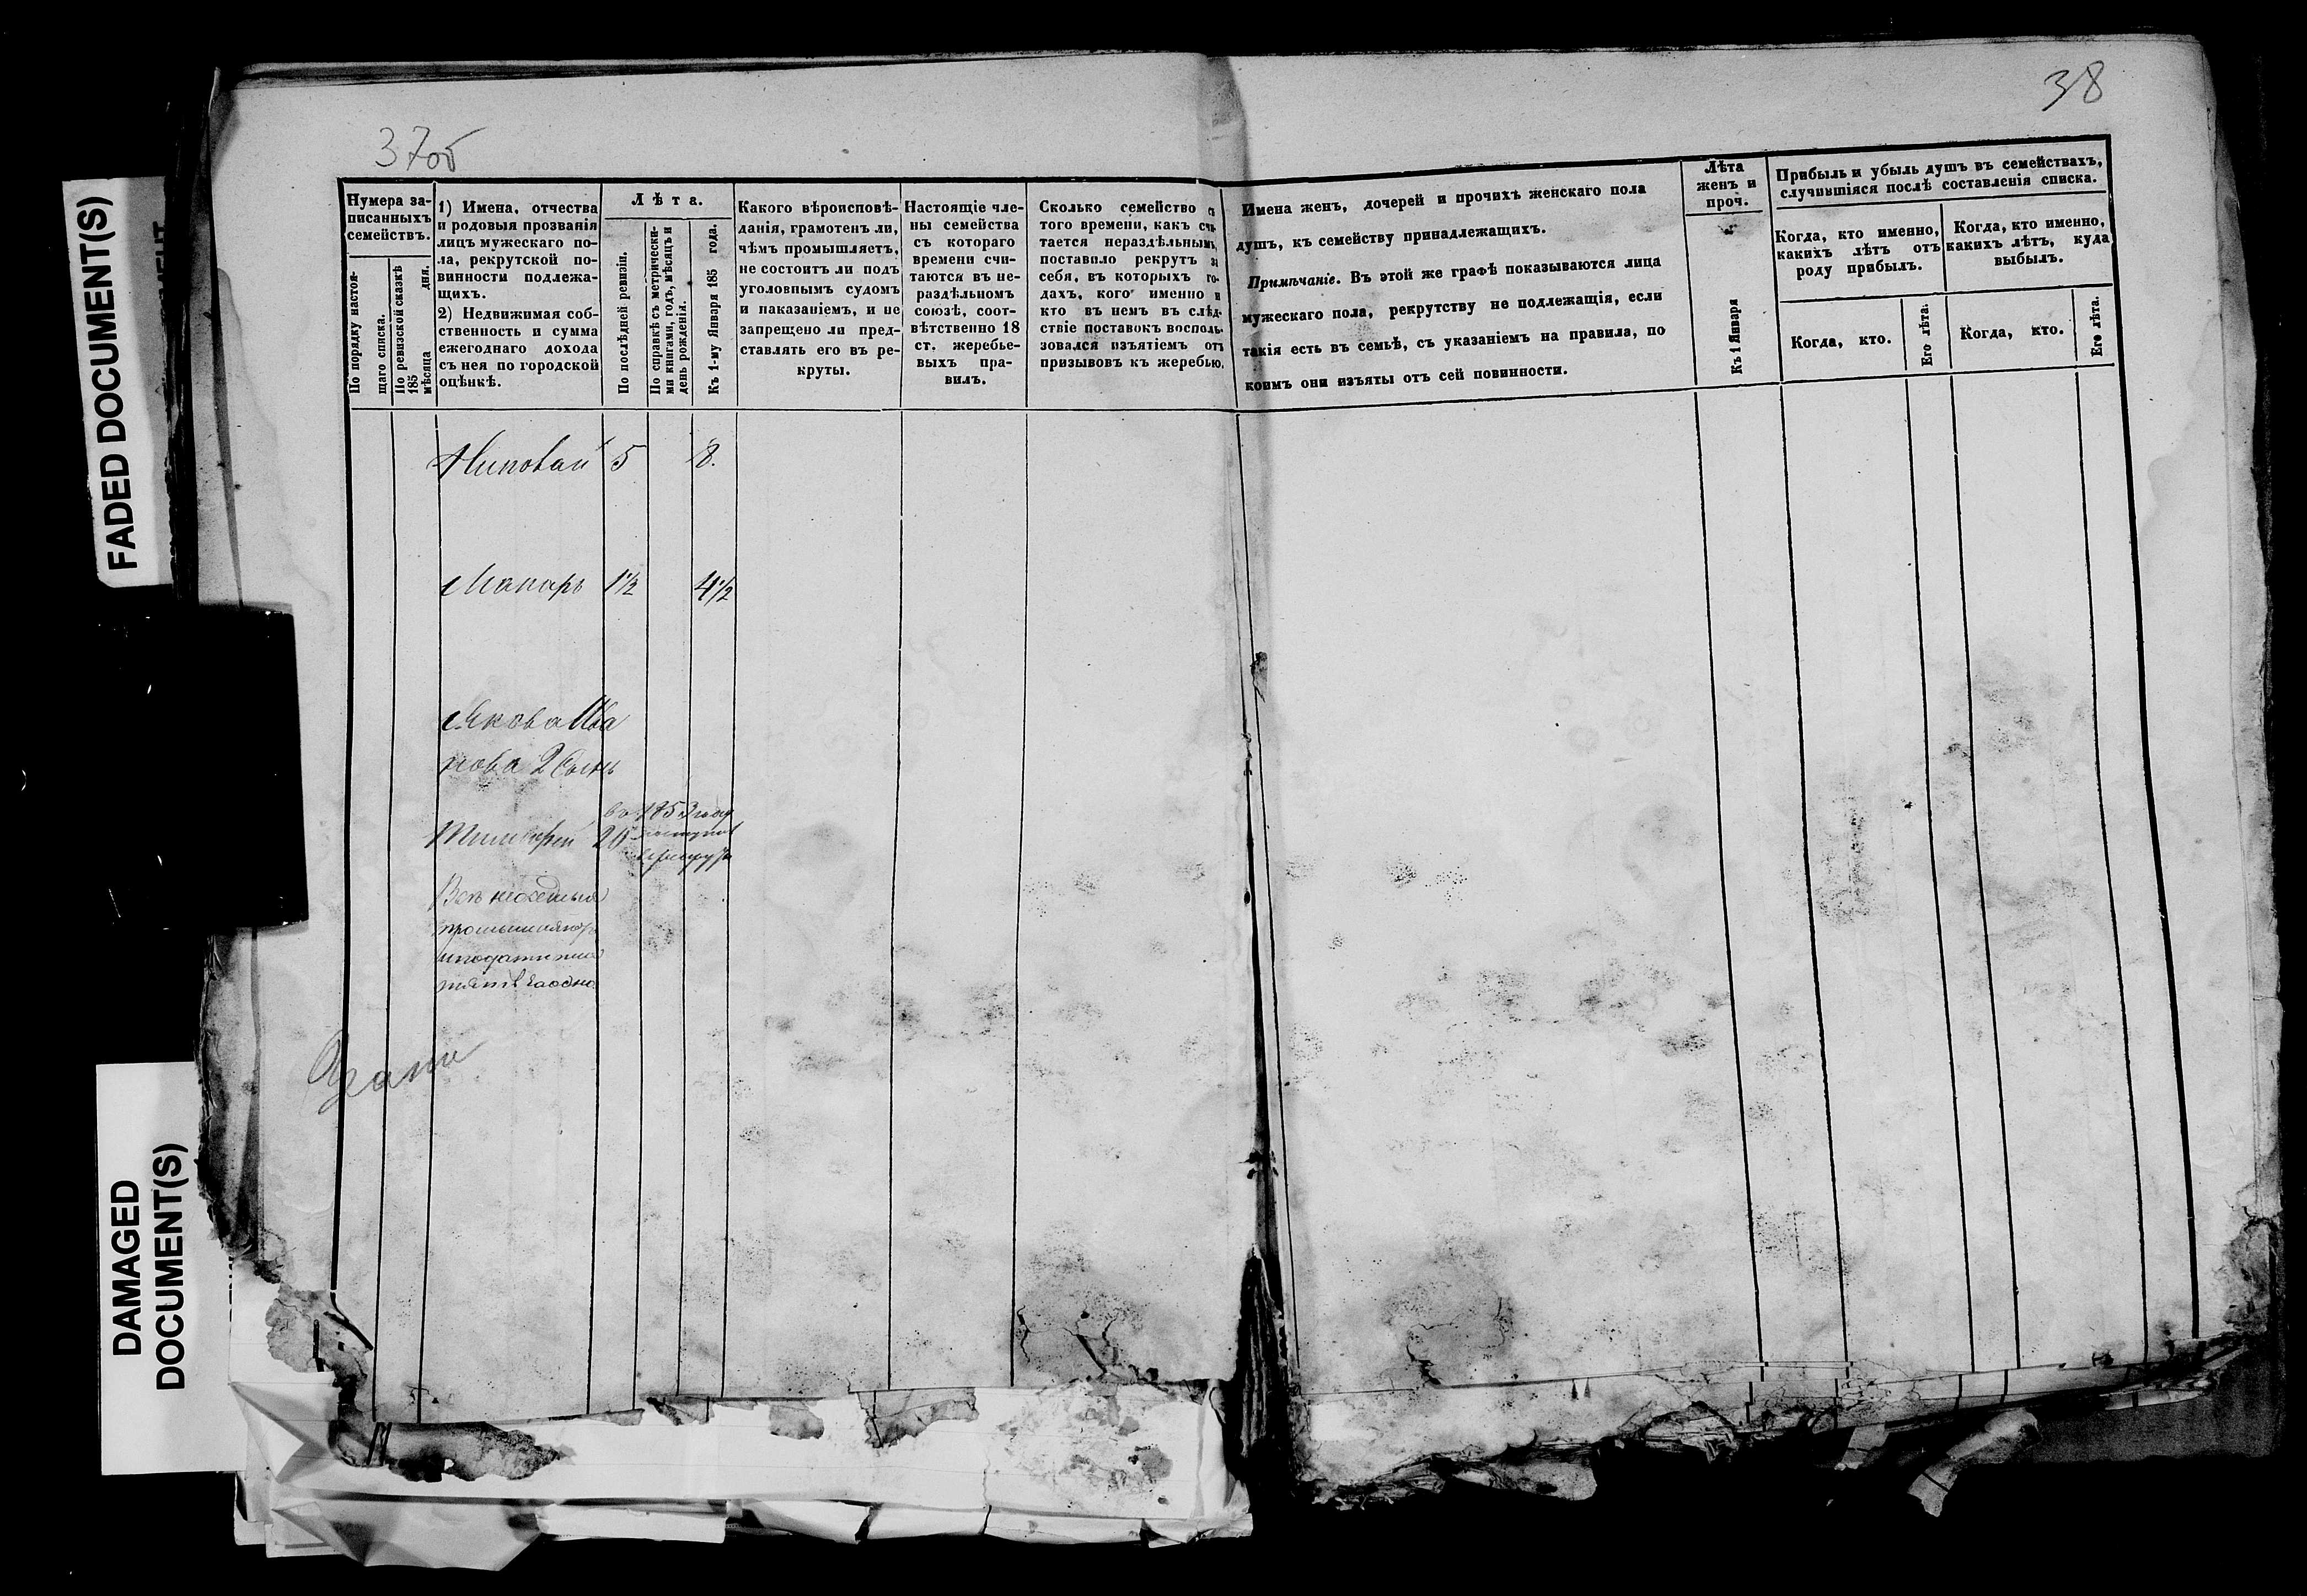 38
37об
FADED DOCUMENT(S)
DAMAGED
DOCUMENT(S)
Нумера за-
писанныхъ
семействъ.
По порядку настоя-
щаго списка.
По ревизской сказкѣ
185 дня.
мѣсяца
1) Имена, отчества
и родовыя прозванія
лицъ мужескаго по-
ла, рекрутской по-
винности подлежа-
щихъ.
2) Недвижимая соб-
ственность и сумма
ежегоднаго дохода
съ нея по городской
оцѣнкѣ.
Лѣта.
По послѣдней ревизіи.
По справкѣ съ метрически-
ми книгами, годъ, мѣсяцъ и
день рожденія.
Къ 1-му Января 185 года.
Какого вѣроисповѣ-
данія, грамотенъ ли,
чѣмъ промышляетъ,
не состоитъ ли подъ
уголовнымъ судомъ
и наказаніемъ, и не
запрещено ли пред-
ставлять его въ ре-
круты.
Настоящіе чле-
ны семейства
съ котораго
времени счи-
таются въ не-
раздѣльномъ
союзѣ, соот-
вѣтственно 18
ст. жеребье-
выхъ пра-
вилъ.
Сколько семейство съ
того времени, какъ счи-
тается нераздѣльнымъ,
поставило рекрутъ за
себя, въ которыхъ го-
дахъ, кого именно и
кто въ немъ въ слѣд-
ствіе поставокъ восполь-
зовался изъятіемъ отъ
призывовъ къ жеребью.
Имена женъ, дочерей и прочихъ женскаго пола
душъ, къ семейству принадлежащихъ.
Примѣчаніе. Въ этой же графѣ показываются лица
мужескаго пола, рекрутству не подлежащія, если
такія есть въ семьѣ, съ указаніемъ на правила, по
коимъ они изъяты отъ сей повинности.
Лѣта
женъ и
проч.
Къ 1 Января
Прибыль и убыль душъ въ семействахъ,
случившіяся послѣ составленія списка.
Когда, кто именно,
какихъ лѣтъ отъ
роду прибылъ.
Когда, кто именно,
какихъ лѣтъ, куда
выбылъ.
Когда, кто.
Его лѣта.
Когда, кто.
Его лѣта.
5 8.
Макаръ 1½ 4½
Якова Ива
нова 2 Сынъ
въ 1853 году
Тимофей 20